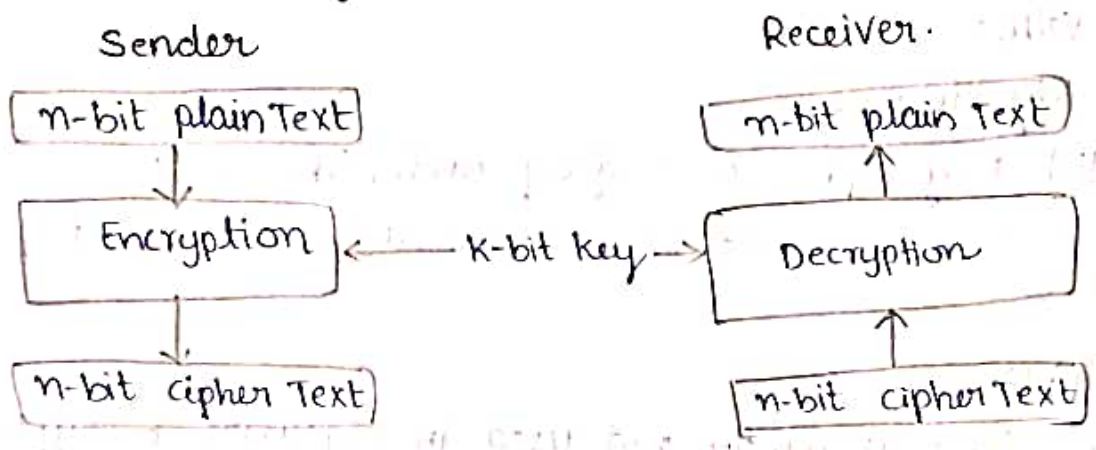 Sender
Receiver.
n-bit plainText
n-bit plain Text
Encryption
K-bit Key
Decryption
n-bit cipher Text
n-bit cipher Text